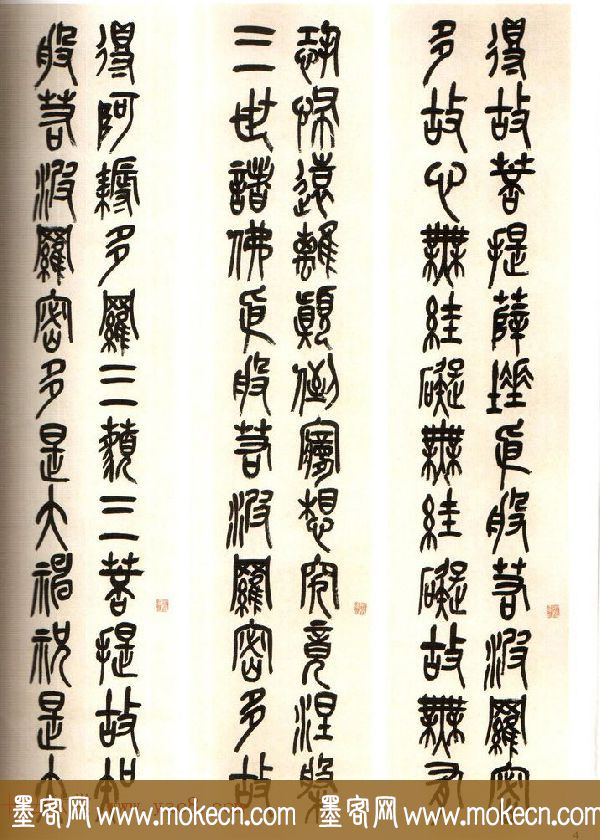 得故菩提薩埵依般若波羅密
多故心無絓礙無絓礙故無有
恐怖遠離顛倒夢想究竟涅槃
三世諸佛依般若波羅密多故
得阿耨多羅三藐三菩提故知
般若波羅密多是大神祝是大
墨客网 www.mokecn.com 墨客网 www.mokecn.com
4